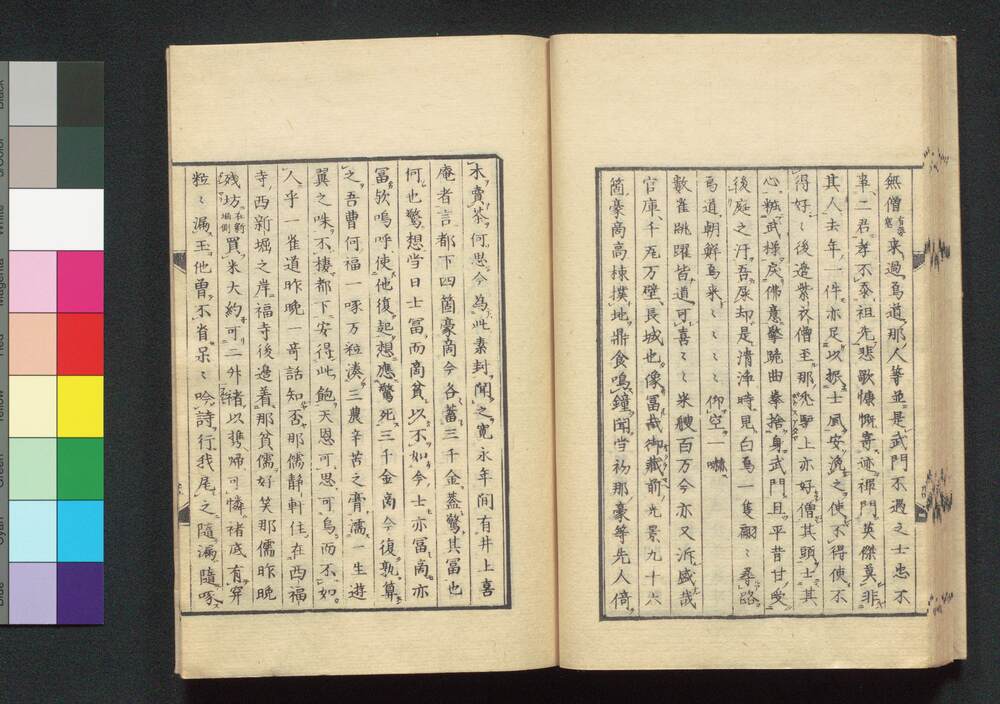 無僧有尋常来過烏道那人等並是武門不遇之士忠不
事二君孝不忝祖先悲歌慷慨寄迹禅門英傑莫非
其人去年一件亦足以振士風安流之使不得使不
得好〻後辺紫衣僧至那禿驢上亦好僧其頭士其
心粧武様戻佛意擎跪曲拳捨身武門且平昔甘喫
後庭之汙吾屎却是清浄時見白烏一隻翩〻尋路
烏道朝鮮烏来〻〻〻仰空一嚇
数雀跳躍皆道可喜〻〻米艘百万今亦又泝盛哉
官庫千厖万壁長城也像冨哉御蔵前光景九十六
箇豪商高棟撲地鼎食鳴鐘聞当初那豪等先人倚
木賣茶何思今為此素封聞之寛永年间有井上喜
庵者言都下四箇豪商今各蓄三千金蓋驚其冨也
何也驚想当日士冨而商貧以不如今士亦冨商亦
冨欤嗚呼使他復起想應驚死三千金商今復孰算
之吾曹何福一啄万粒湊三農辛苦之膏濡一生遊
翼之味不棲都下安得此飽天恩可思可烏而不如
人乎一雀道昨晩一奇話知否那儒静軒住在西福
寺西新堀之岸福寺後邊着那貧儒好笑那儒昨晩
残坊在新堀側買米大約可二升褚以携帰可憐褚底有穿
粒〻漏玉他曽不省呆〻吟詩行我尾之随漏随啄